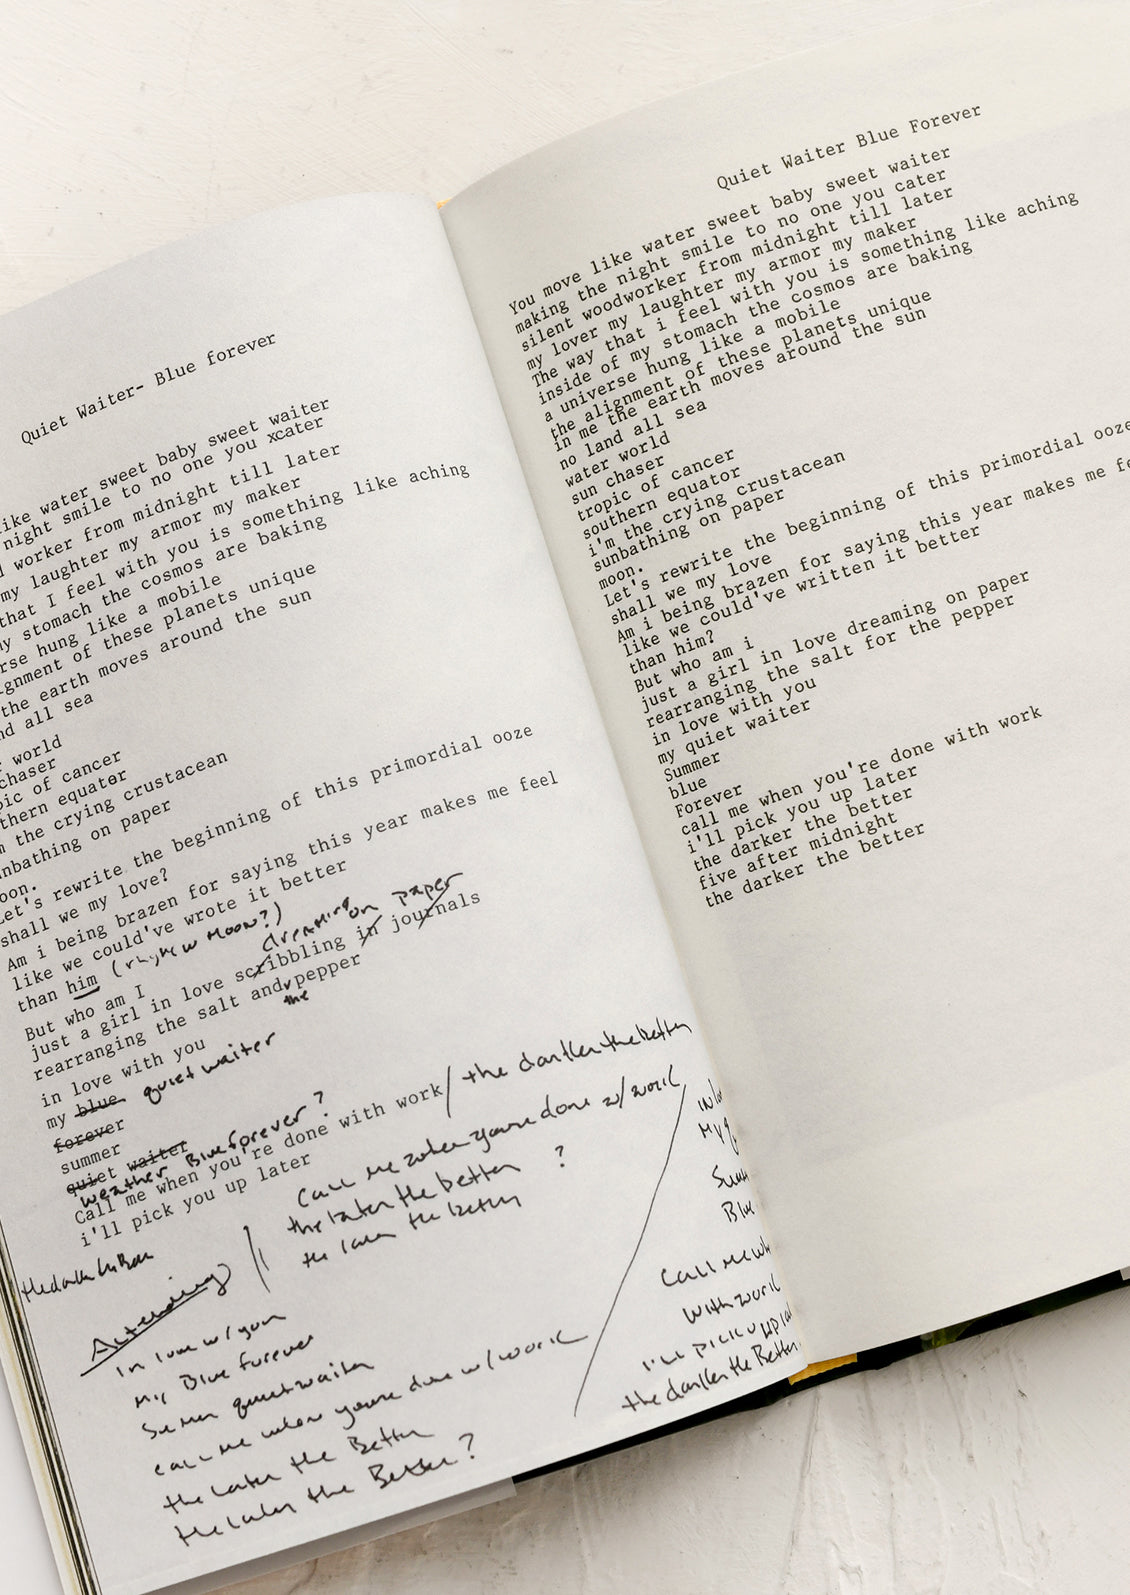 Quiet Waiter- Blue forever
like water sweet baby sweet waiter
night smile to no one you xcater
worker from midnight till later
my laughter my armor my maker
that I feel with you is something like aching
my stomach the cosmos are baking
hung like a mobile
of these planets unique
the earth moves around the sun
all sea
world
chaser
of cancer
equator
the crying crustacean
on paper
Let's rewrite the beginning of this primordial ooze
shall we my love?
Am i being brazen for saying this year makes me feel
like we could've wrote it better
than him
But who am I
dreaming on paper
just a girl in love scribbling in journals
rearranging the salt and pepper
the
in love with you
my blue quiet waiter
forever
summer
quiet waiter
weather Blue forever?
Call me when you're done with work / the darker the better
i'll pick you up later
Call me when youre done w/ work
the later the better ?
the later the better
Alt ending
in love w/ you
my Blue forever
Summer quiet waiter
call me when youre done w/ work
the later the Better
the later the Better?
in
My
Summ
Blue
Call me wh
with work
I'll pick u up
the darker the Better
Quiet Waiter Blue Forever
You move like water sweet baby sweet waiter
making the night smile to no one you cater
silent woodworker from midnight till later
my lover my laughter my armor my maker
The way that i feel with you is something like aching
inside of my stomach the cosmos are baking
a universe hung like a mobile
the alignment of these planets unique
in me the earth moves around the sun
no land all sea
water world
sun chaser
tropic of cancer
southern equator
i'm the crying crustacean
sunbathing on paper
moon.
Let's rewrite the beginning of this primordial ooze
shall we my love
Am i being brazen for saying this year makes me
like we could've written it better
than him?
But who am i
just a girl in love dreaming on paper
rearranging the salt for the pepper
in love with you
my quiet waiter
Summer
blue
Forever
call me when you're done with work
i'll pick you up later
the darker the better
five after midnight
the darker the better